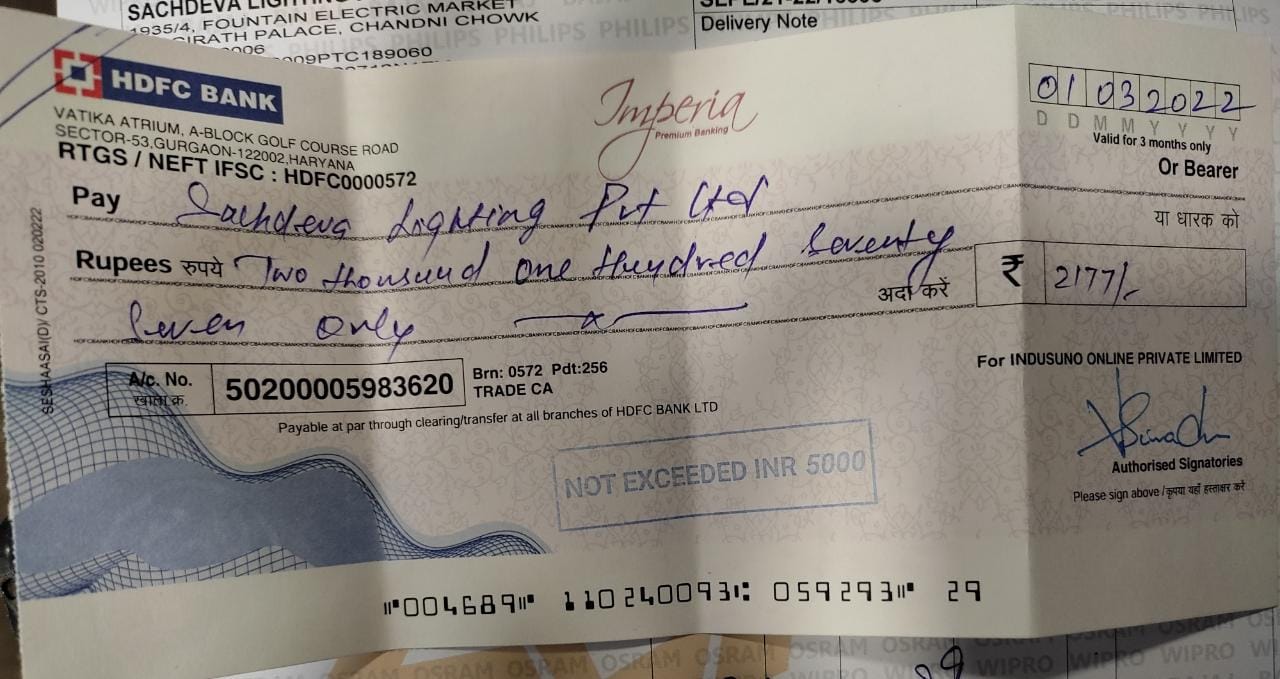 SACHDEVA
1935/4, FOUNTAIN ELECTRIC MARKET
GIRATH PALACE, CHANDNI CHOWK
006
009PTC189060
Delivery Note
PHILIPS PHILIPS PHILIPS PHILIPS
HDFC BANK
VATIKA ATRIUM, A-BLOCK GOLF COURSE ROAD
SECTOR-53,GURGAON-122002,HARYANA
RTGS / NEFT IFSC : HDFC0000572
Imperia
Premium Banking
01032022
D D M M Y Y Y Y
Valid for 3 months only
Or Bearer
Pay Sachdeva Lighting Pvt Ltd
या धारक को
Rupees रुपये Two thousund one Hundred Seventy
Seven Only
अदा करें
₹ 2177/-
A/c. No.
खाता क्र.
50200005983620
Brn: 0572 Pdt:256
TRADE CA
Payable at par through clearing/transfer at all branches of HDFC BANK LTD
For INDUSUNO ONLINE PRIVATE LIMITED
NOT EXCEEDED INR 5000
Authorised Signatories
Please sign above / कृपया यहाँ हस्ताक्षर करें
SESHAASAI(D)/ CTS-2010 020222
⑈004689⑈ 110240093⑆ 059293⑈ 29
OSRAM OSRAM OSRAM OSRAM
WIPRO WIPRO WIPRO